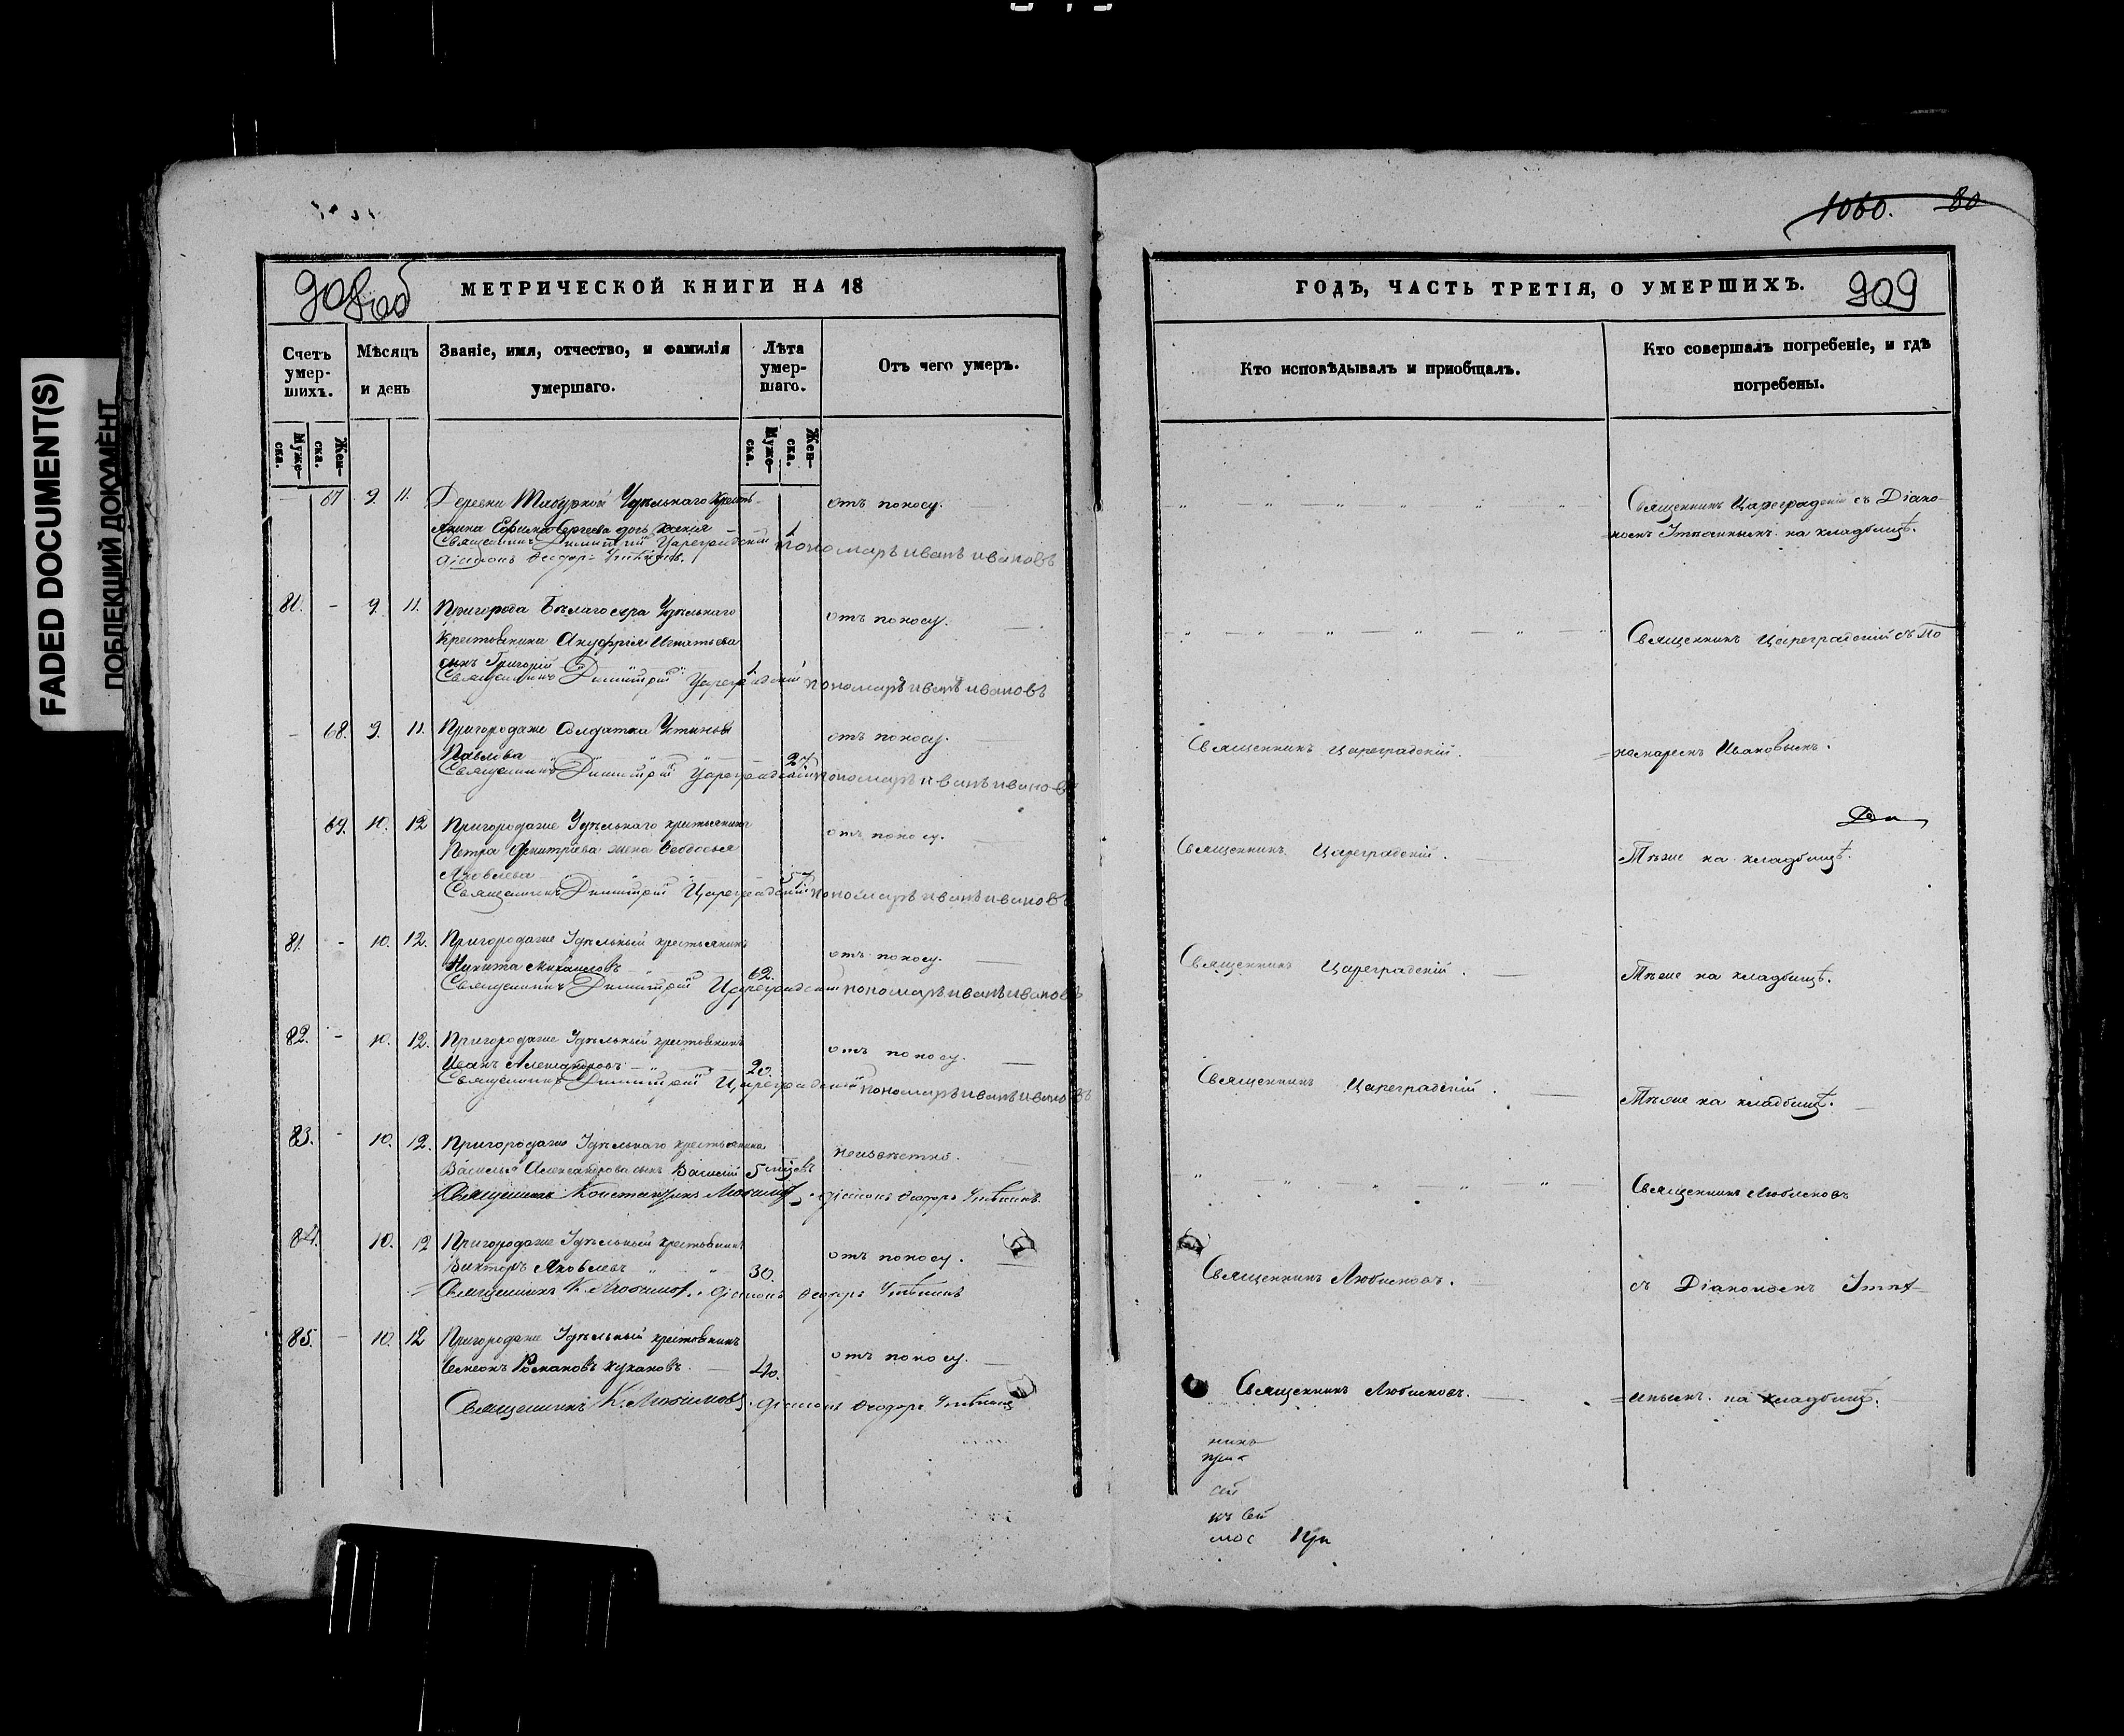 FADED DOCUMENT(S)
ПОБЛЕКШИЙ ДОКУМЕНТ
1060. 80
908об МЕТРИЧЕСКОЙ КНИГИ НА 18
Счетъ умер-шихъ.
Муже-ска.
Жен-ска.
Мѣсяцъ и день
Званіе, имя, отчество, и фамилія умершаго.
Лѣта умер-шаго.
Муже-ска.
Жен-ска.
Отъ чего умеръ.
67 9. 11. Деревни Удѣльнаго Кресть-
янина Сергеева дочь 1 отъ поносу.
Священникъ Димитрій Цареградскій пономарь иванъ ивановъ
діаконъ Ѳеодоръ
80. - 9. 11. Пригорода Бѣлаго Яра Удѣльнаго отъ поносу.
Крестьянина Ануфрія Игнатьева
сынъ Григорій 1
Священникъ Димитрій Цареградскій пономарь иванъ ивановъ
- 68. 9. 11. Пригородаже Солдатка Устинья отъ поносу.
Павлова 27
Священникъ Димитрій Цареградскій пономарь иванъ ивановъ
69. 10. 12 Пригородаже Удѣльнаго крестьянина отъ поносу.
Петра Дмитріева жена Ѳеодосья
Яковлева
Священникъ Димитрій Цареградскій пономарь иванъ ивановъ
81. - 10. 12. Пригородаже Удѣльный крестьянинъ отъ поносу.
Никита Михайловъ 62.
Священникъ Димитрій Цареградскій пономарь иванъ ивановъ
82. - 10. 12. Пригородаже Удѣльный крестьянинъ отъ поносу.
Иванъ Александровъ 20.
Священникъ Димитрій Цареградскій пономарь иванъ ивановъ
83. - 10. 12. Пригородаже Удѣльнаго крестьянина неизвѣстно.
Василья Александрова сынъ Василій 5 мѣсяц.
Священникъ Константинъ Любимовъ діаконъ Ѳеодоръ
84. 10. 12 Пригородаже Удѣльный крестьянинъ отъ поносу.
Викторъ Яковлевъ 30.
Священникъ К. Любимовъ. діаконъ Ѳеодоръ
85. - 10. 12 Пригородаже Удѣльный крестьянинъ отъ поносу.
Симеонъ Романовъ 40.
Священникъ К. Любимовъ. діаконъ Ѳеодоръ
ГОДЪ, ЧАСТЬ ТРЕТІЯ, О УМЕРШИХЪ. 909
Кто исповѣдывалъ и пріобщалъ.
Кто совершалъ погребеніе, и гдѣ погребены.
Священникъ Цареградскій съ Діако-
номъ на кладбищѣ.
Священникъ Цареградскій съ По
Священникъ Цареградскій. =номаремъ Ивановымъ.
Священникъ Цареградскій. Тѣже на кладбищѣ.
Священникъ Цареградскій. Тѣже на кладбищѣ.
Священникъ Цареградскій. Тѣже на кладбищѣ.
Священникъ Любимовъ
Священникъ Любимовъ. съ Діакономъ
Священникъ Любимовъ. на кладбищѣ.